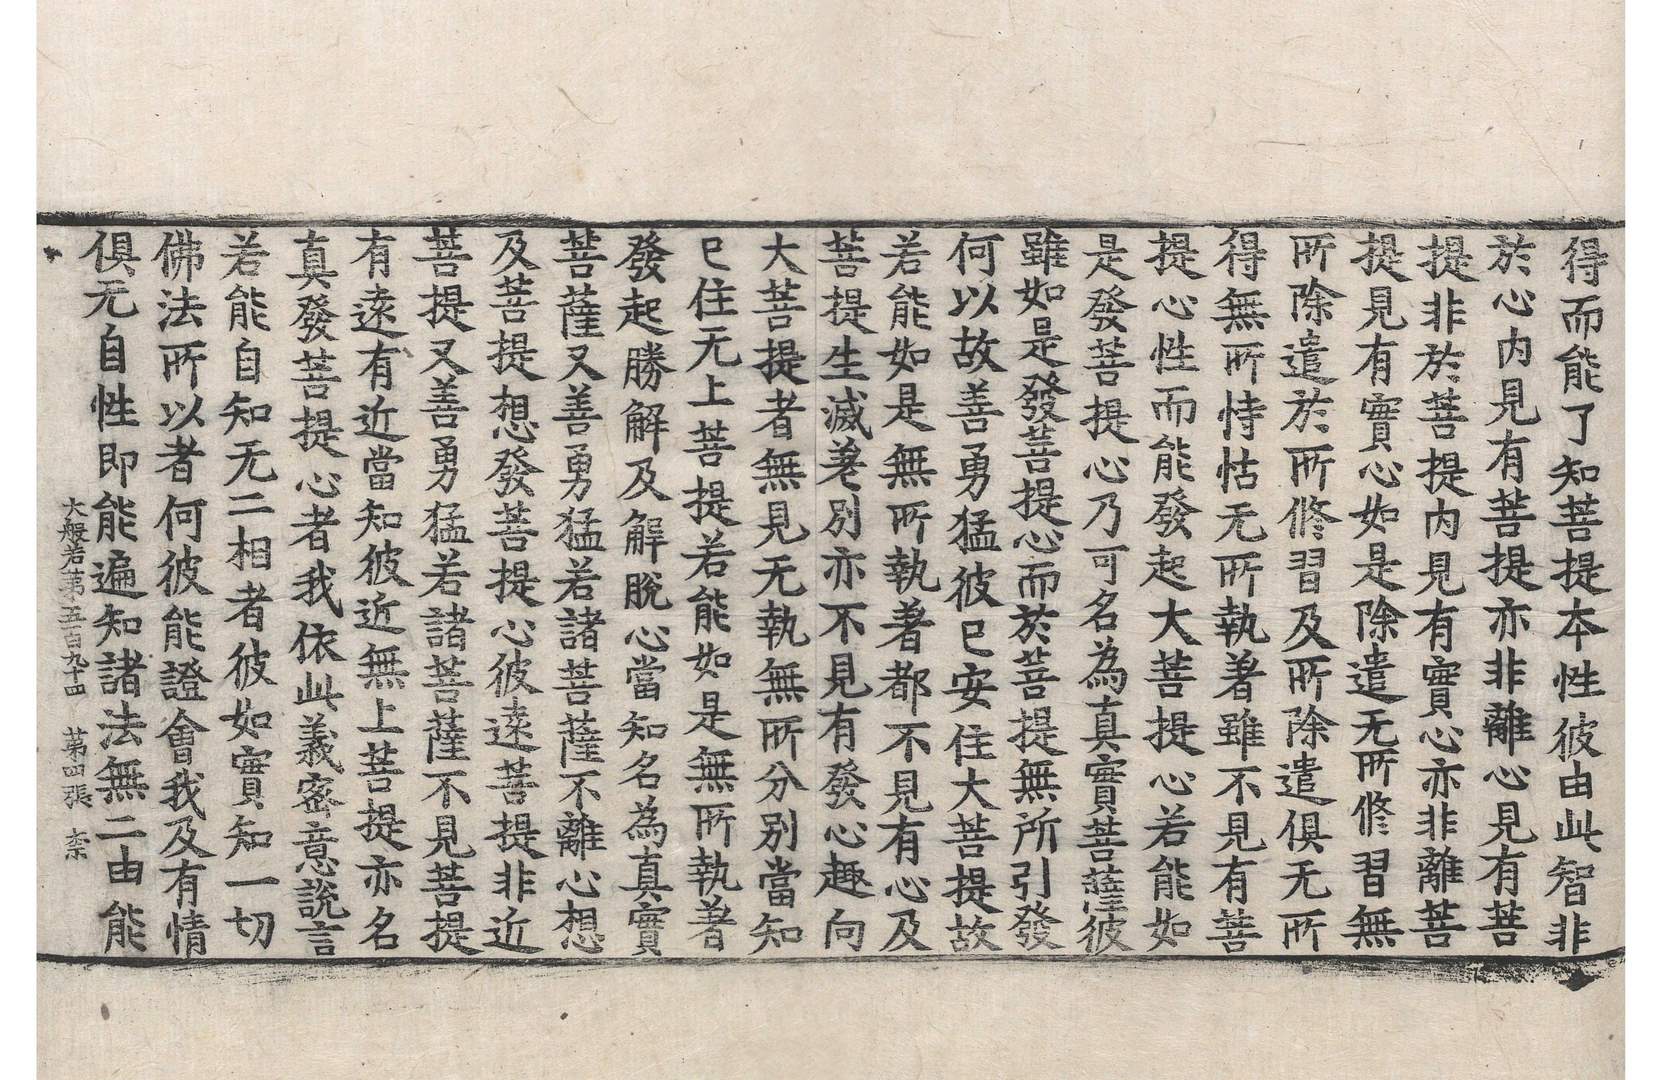 得而能了知菩提本性彼由此智非
於心内見有菩提亦非離心見有菩
提非於菩提内見有實心亦非離菩
提見有實心如是除遣无所修習無
所除遣於所修習及所除遣俱无所
得無所恃怙无所執著雖不見有菩
提心性而能發起大菩提心若能如
是發菩提心乃可名為真實菩薩彼
雖如是發菩提心而於菩提無所引發
何以故善勇猛彼已安住大菩提故
若能如是無所執著都不見有心及
菩提生滅差別亦不見有發心趣向
大菩提者無見无執無所分別當知
已住无上菩提若能如是無所執著
發起勝解及解脫心當知名為真實
菩薩又善勇猛若諸菩薩不離心想
及菩提想發菩提心彼遠菩提非近
菩提又善勇猛若諸菩薩不見菩提
有遠有近當知彼近無上菩提亦名
真發菩提心者我依此義密意說言
若能自知无二相者彼如實知一切
佛法所以者何彼能證會我及有情
俱无自性即能遍知諸法無二由能
大般若第五百九十四 第四張 柰